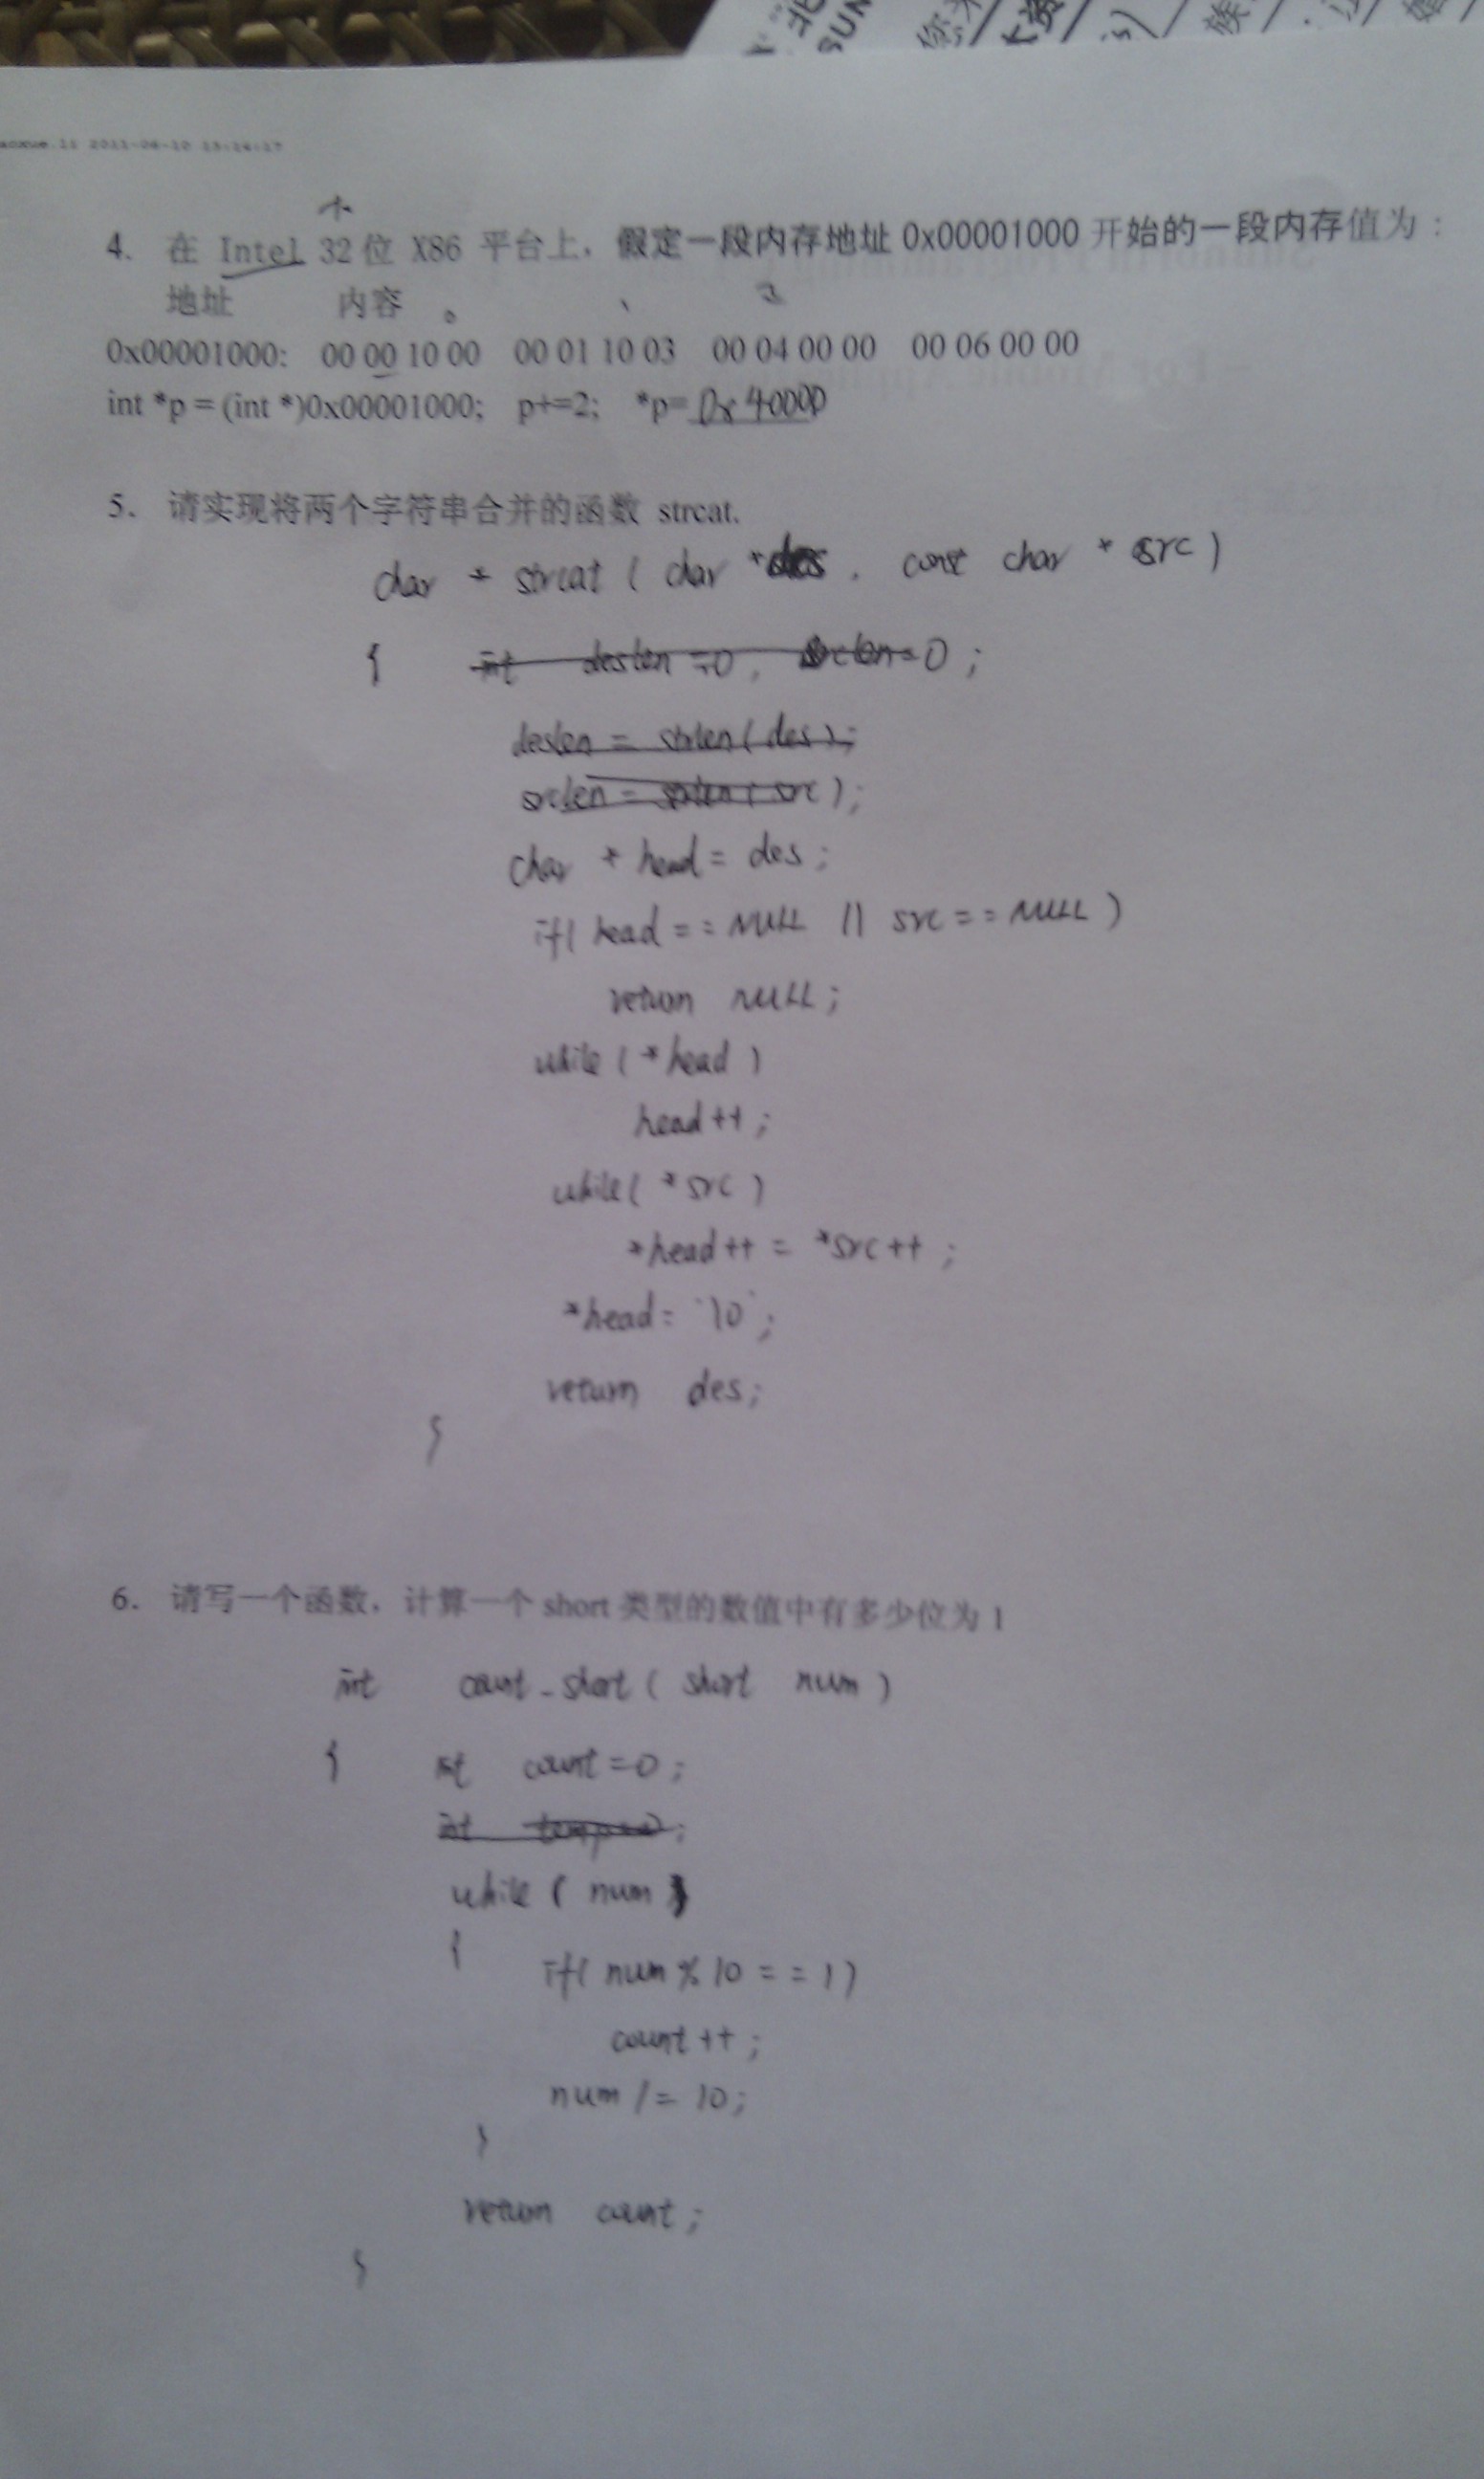 SUN
2011-06-10 13:24:17
4. 在 Intel 32位 X86 平台上，假定一段内存地址 0x00001000 开始的一段内存值为：
地址 内容
0x00001000: 00 00 10 00 00 01 10 03 00 04 00 00 00 06 00 00
int *p = (int *)0x00001000; p+=2; *p= 0x40000
5. 请实现将两个字符串合并的函数 strcat.
char * strcat ( char *des , const char * src )
{ int deslen =0, srclen=0 ;
deslen = strlen( des );
srclen = strlen( src );
char * head = des ;
if( head == NULL || src == NULL )
return NULL ;
while ( *head )
head ++ ;
while ( *src )
*head ++ = *src ++ ;
*head = '\0' ;
return des ;
}
6. 请写一个函数，计算一个 short 类型的数值中有多少位为 1
int count_short ( short num )
{ int count =0 ;
int temp=0 ;
while ( num )
{ if( num % 10 == 1 )
count ++ ;
num /= 10 ;
}
return count ;
}